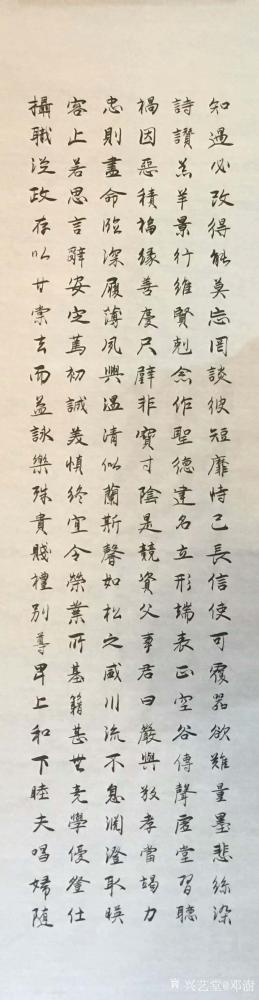 知過必改得能莫忘罔談彼短靡恃己長信使可覆器欲難量墨悲絲染
詩讚羔羊景行維賢剋念作聖德建名立形端表正空谷傳聲虛堂習聽
禍因惡積福緣善慶尺璧非寶寸陰是競資父事君曰嚴與敬孝當竭力
忠則盡命臨深履薄夙興温清似蘭斯馨如松之盛川流不息淵澄取暎
容止若思言辭安定篤初誠美慎終宜令榮業所基籍甚無竟學優登仕
攝職從政存以甘棠去而益詠樂殊貴賤禮別尊卑上和下睦夫唱婦隨
兴艺堂@邓澍